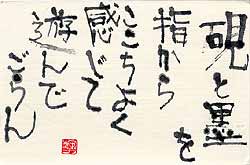 硯と墨を
指から
ここちよく
感じて
遊んで
ごらん